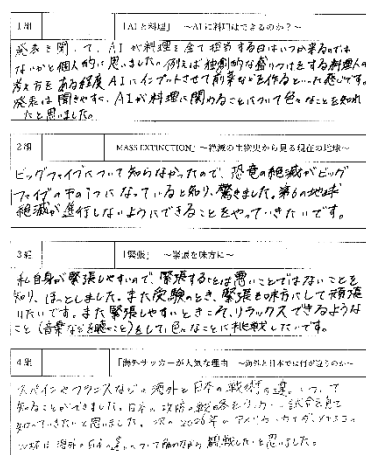 1組 「AIと料理」 ～AIに料理はできるのか？～
発表を聞いて、AIが料理を全て担当する日はいつか来るのでは
ないかと個人的に思いました。例えば独創的な盛りつけをする料理人の
考え方をある程度AIにインプットさせて前菜などを作るといった感じです。
発表は聞きやすく、AIが料理に関わることについて色々なことを知れ
たと思いました。
2組 MASS EXTINCTION」～絶滅の生物史から見る現在の地球～
ビッグファイブについて知らなかったので、恐竜の絶滅がビッグ
ファイブの中の1つになっていると知り、驚きました。第6の地球
絶滅が進行しないようにできることをやっていきたいです。
3組 「緊張」 ～緊張を味方に～
私自身が緊張しやすいので、緊張することは悪いことではないことを
知り、ほっとしました。また受験のとき、緊張も味方にして頑張
りたいです。また緊張しやすいときこそ、リラックスできるような
こと（音楽などを聴くこと）をして色々なことに挑戦したいです。
4組 「海外サッカーが人気な理由 ～海外と日本では何が違うのか～
スペインやフランスなどの海外と日本の戦術の違いについて
知ることができました。日本の攻防の戦略を 試合を見て
知っていきたいと思いました。次の2026年の アメリカ・カナダ・メキシコの
W杯は海外と日本の違いについて 観戦したいと思いました。